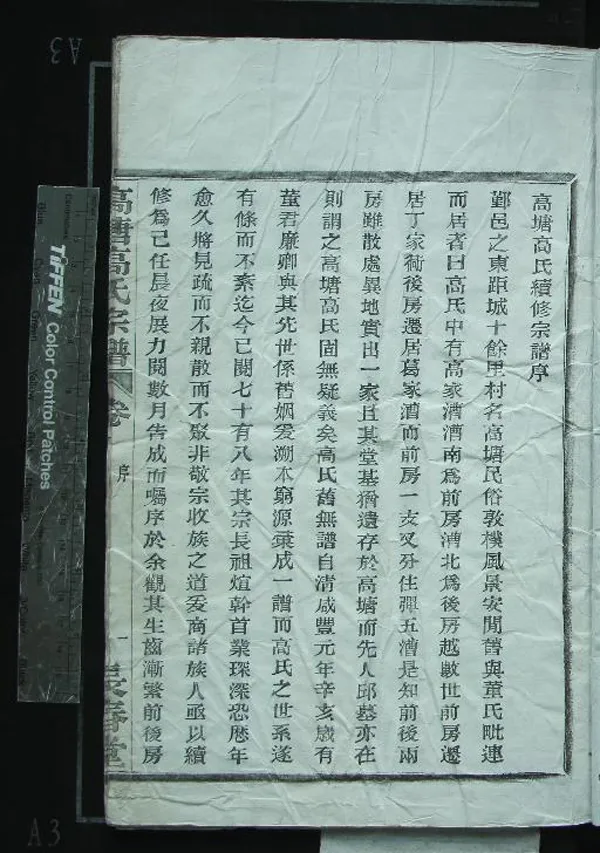 高塘高氏續修宗譜序
鄞邑之東距城十餘里村名高塘民俗敦樸風景安閒舊與董氏毗連
而居者曰高氏中有高家漕漕南爲前房漕北爲後房越數世前房遷
居丁家衕後房遷居葛家漕而前房一支又分住彈五漕是知前後兩
房雖散處異地實出一家且其堂基猶遺存於高塘而先人邱墓亦在
則謂之高塘高氏固無疑義矣高氏舊無譜自清咸豐元年辛亥歲有
董君廉卿與其先世係舊姻爰溯本窮源彙成一譜而高氏之世系遂
有條而不紊迄今已閱七十有八年其宗長祖煊幹首業琛深恐歷年
愈久將見疏而不親散而不聚非敬宗收族之道爰商諸族人亟以續
修爲己任晨夜展力閱數月告成而囑序於余觀其生齒漸繁前後房
高塘高氏宗譜 卷 序 一 長春堂
A3
A3
TIFFEN Color Control Patches